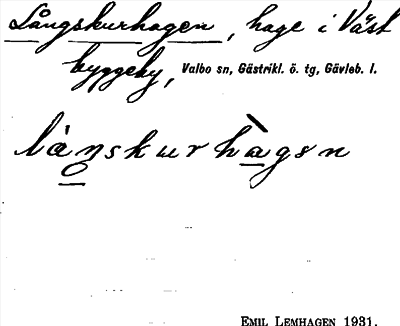 Långskurhagen, hage i Väst
byggeby, Valbo sn, Gästrikl. ö. tg, Gävleb. l.
lå̀ŋskurhàgen
EMIL LEMHAGEN 1931.